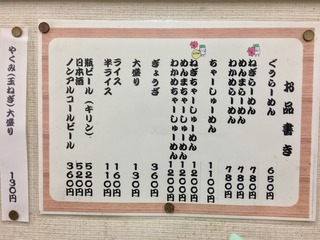 お品書き
ぐうらーめん 650円
ねぎらーめん 780円
めんまらーめん 780円
わかめらーめん 780円
ちゃーしゅーめん 1100円
ねぎちゃーしゅーめん 1200円
めんまちゃーしゅーめん 1200円
わかめちゃーしゅーめん 1200円
ぎょうざ 360円
大盛り 130円
ライス 160円
半ライス 110円
瓶ビール(キリン) 520円
日本酒 520円
ノンアルコールビール 360円
やくみ(玉ねぎ)大盛り 130円